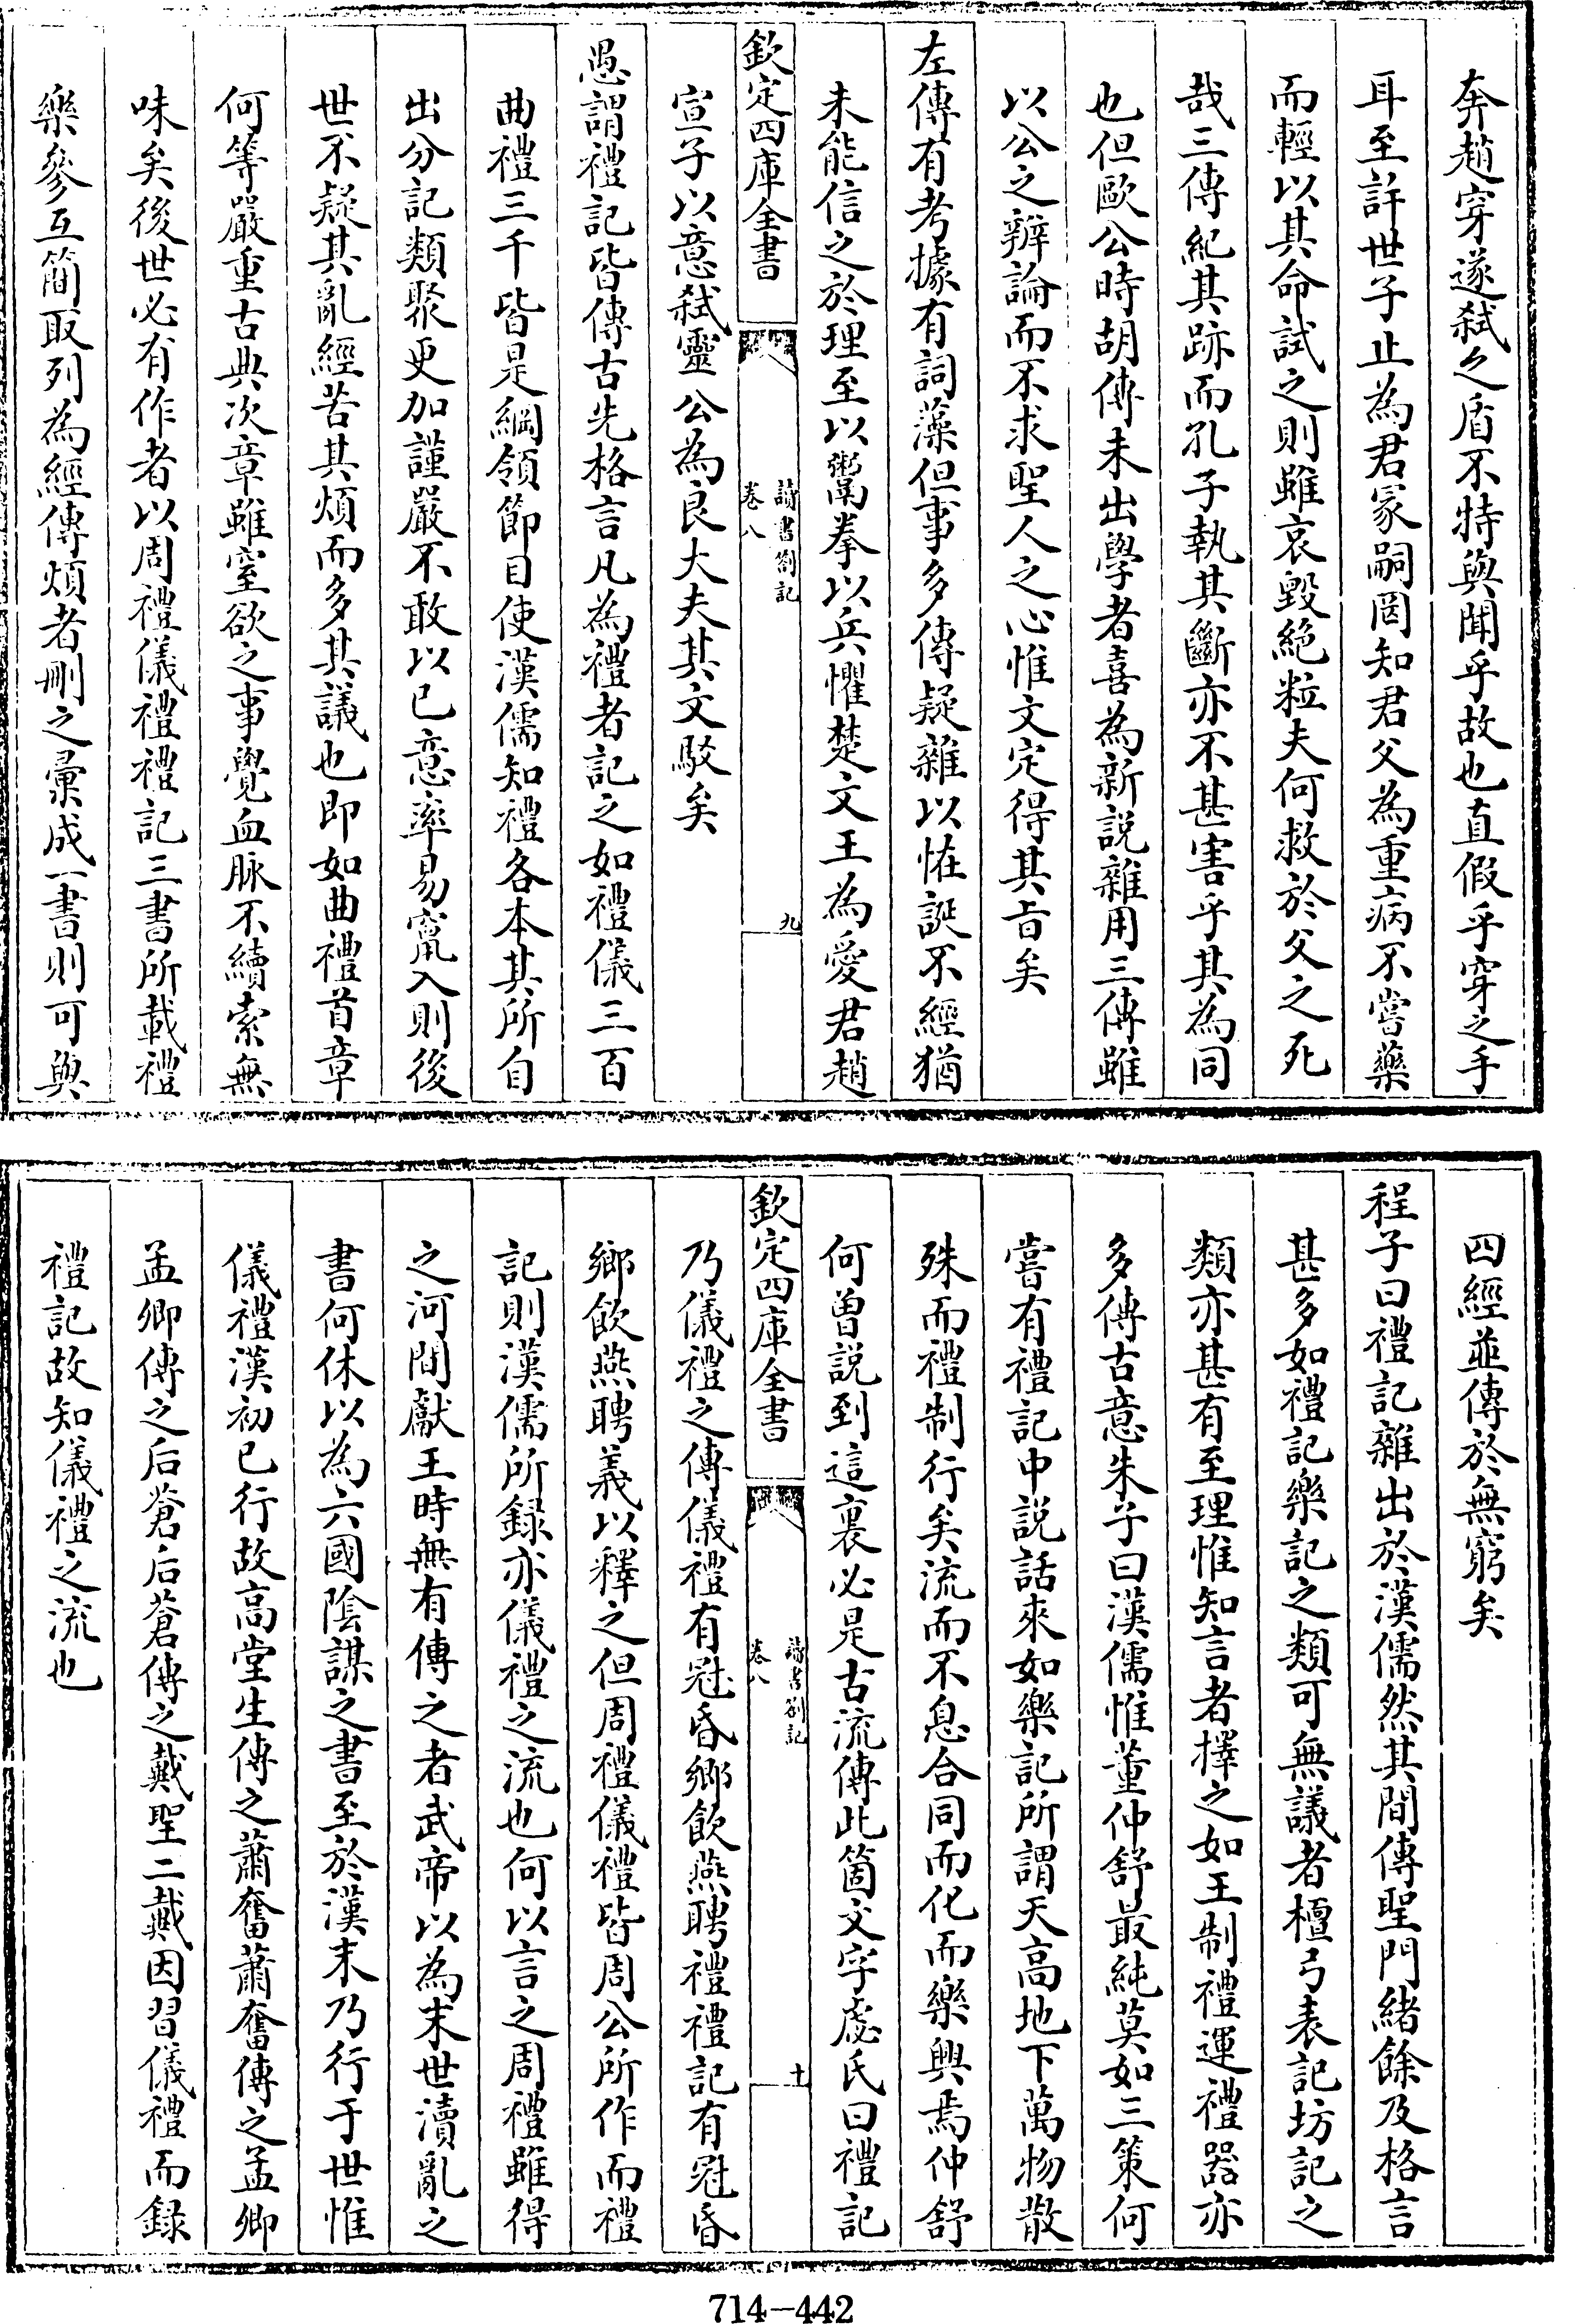 奔趙穿遂弑之盾不特與聞乎故也直假乎穿之手
耳至許世子止為君冢嗣罔知君父為重病不嘗藥
而輕以其命試之則雖哀毀絶粒夫何救於父之死
哉三傳紀其跡而孔子執其斷亦不甚害乎其為同
也但歐公時胡傳未出學者喜為新説雜用三傳雖
以公之辨論而不求聖人之心惟文定得其旨矣
左傳有考據有詞藻但事多傳疑雜以恠誕不經猶
未能信之於理至以鬻拳以兵懼楚文王為愛君趙
欽定四庫全書
讀書劄記
卷八
九
宣子以意弑靈公為良大夫其文駁矣
愚謂禮記皆傳古先格言凡為禮者記之如禮儀三百
曲禮三千皆是綱領節目使漢儒知禮各本其所自
出分記類聚更加謹嚴不敢以已意率易竄入則後
世不疑其亂經苦其煩而多其議也即如曲禮首章
何等嚴重古典次章雖窒欲之事覺血脉不續索無
味矣後世必有作者以周禮儀禮禮記三書所載禮
樂參互簡取列為經傳煩者刪之彙成一書則可與
四經並傳於無窮矣
程子曰禮記雜出於漢儒然其間傳聖門緒餘及格言
甚多如禮記樂記之類可無議者檀弓表記坊記之
類亦甚有至理惟知言者擇之如王制禮運禮器亦
多傳古意朱子曰漢儒惟董仲舒最純莫如三策何
嘗有禮記中説話來如樂記所謂天高地下萬物散
殊而禮制行矣流而不息合同而化而樂興焉仲舒
何曾説到這裏必是古流傳此箇文字虙氏曰禮記
欽定四庫全書
讀書劄記
卷八
十
乃儀禮之傳儀禮有冠昏鄉飲燕聘禮禮記有冠昏
鄉飲燕聘義以釋之但周禮儀禮皆周公所作而禮
記則漢儒所録亦儀禮之流也何以言之周禮雖得
之河間獻王時無有傳之者武帝以為末世瀆亂之
書何休以為六國陰謀之書至於漢末乃行于世惟
儀禮漢初已行故高堂生傳之蕭奮蕭奮傳之孟卿
孟卿傳之后蒼后蒼傳之戴聖二戴因習儀禮而録
禮記故知儀禮之流也
714-442